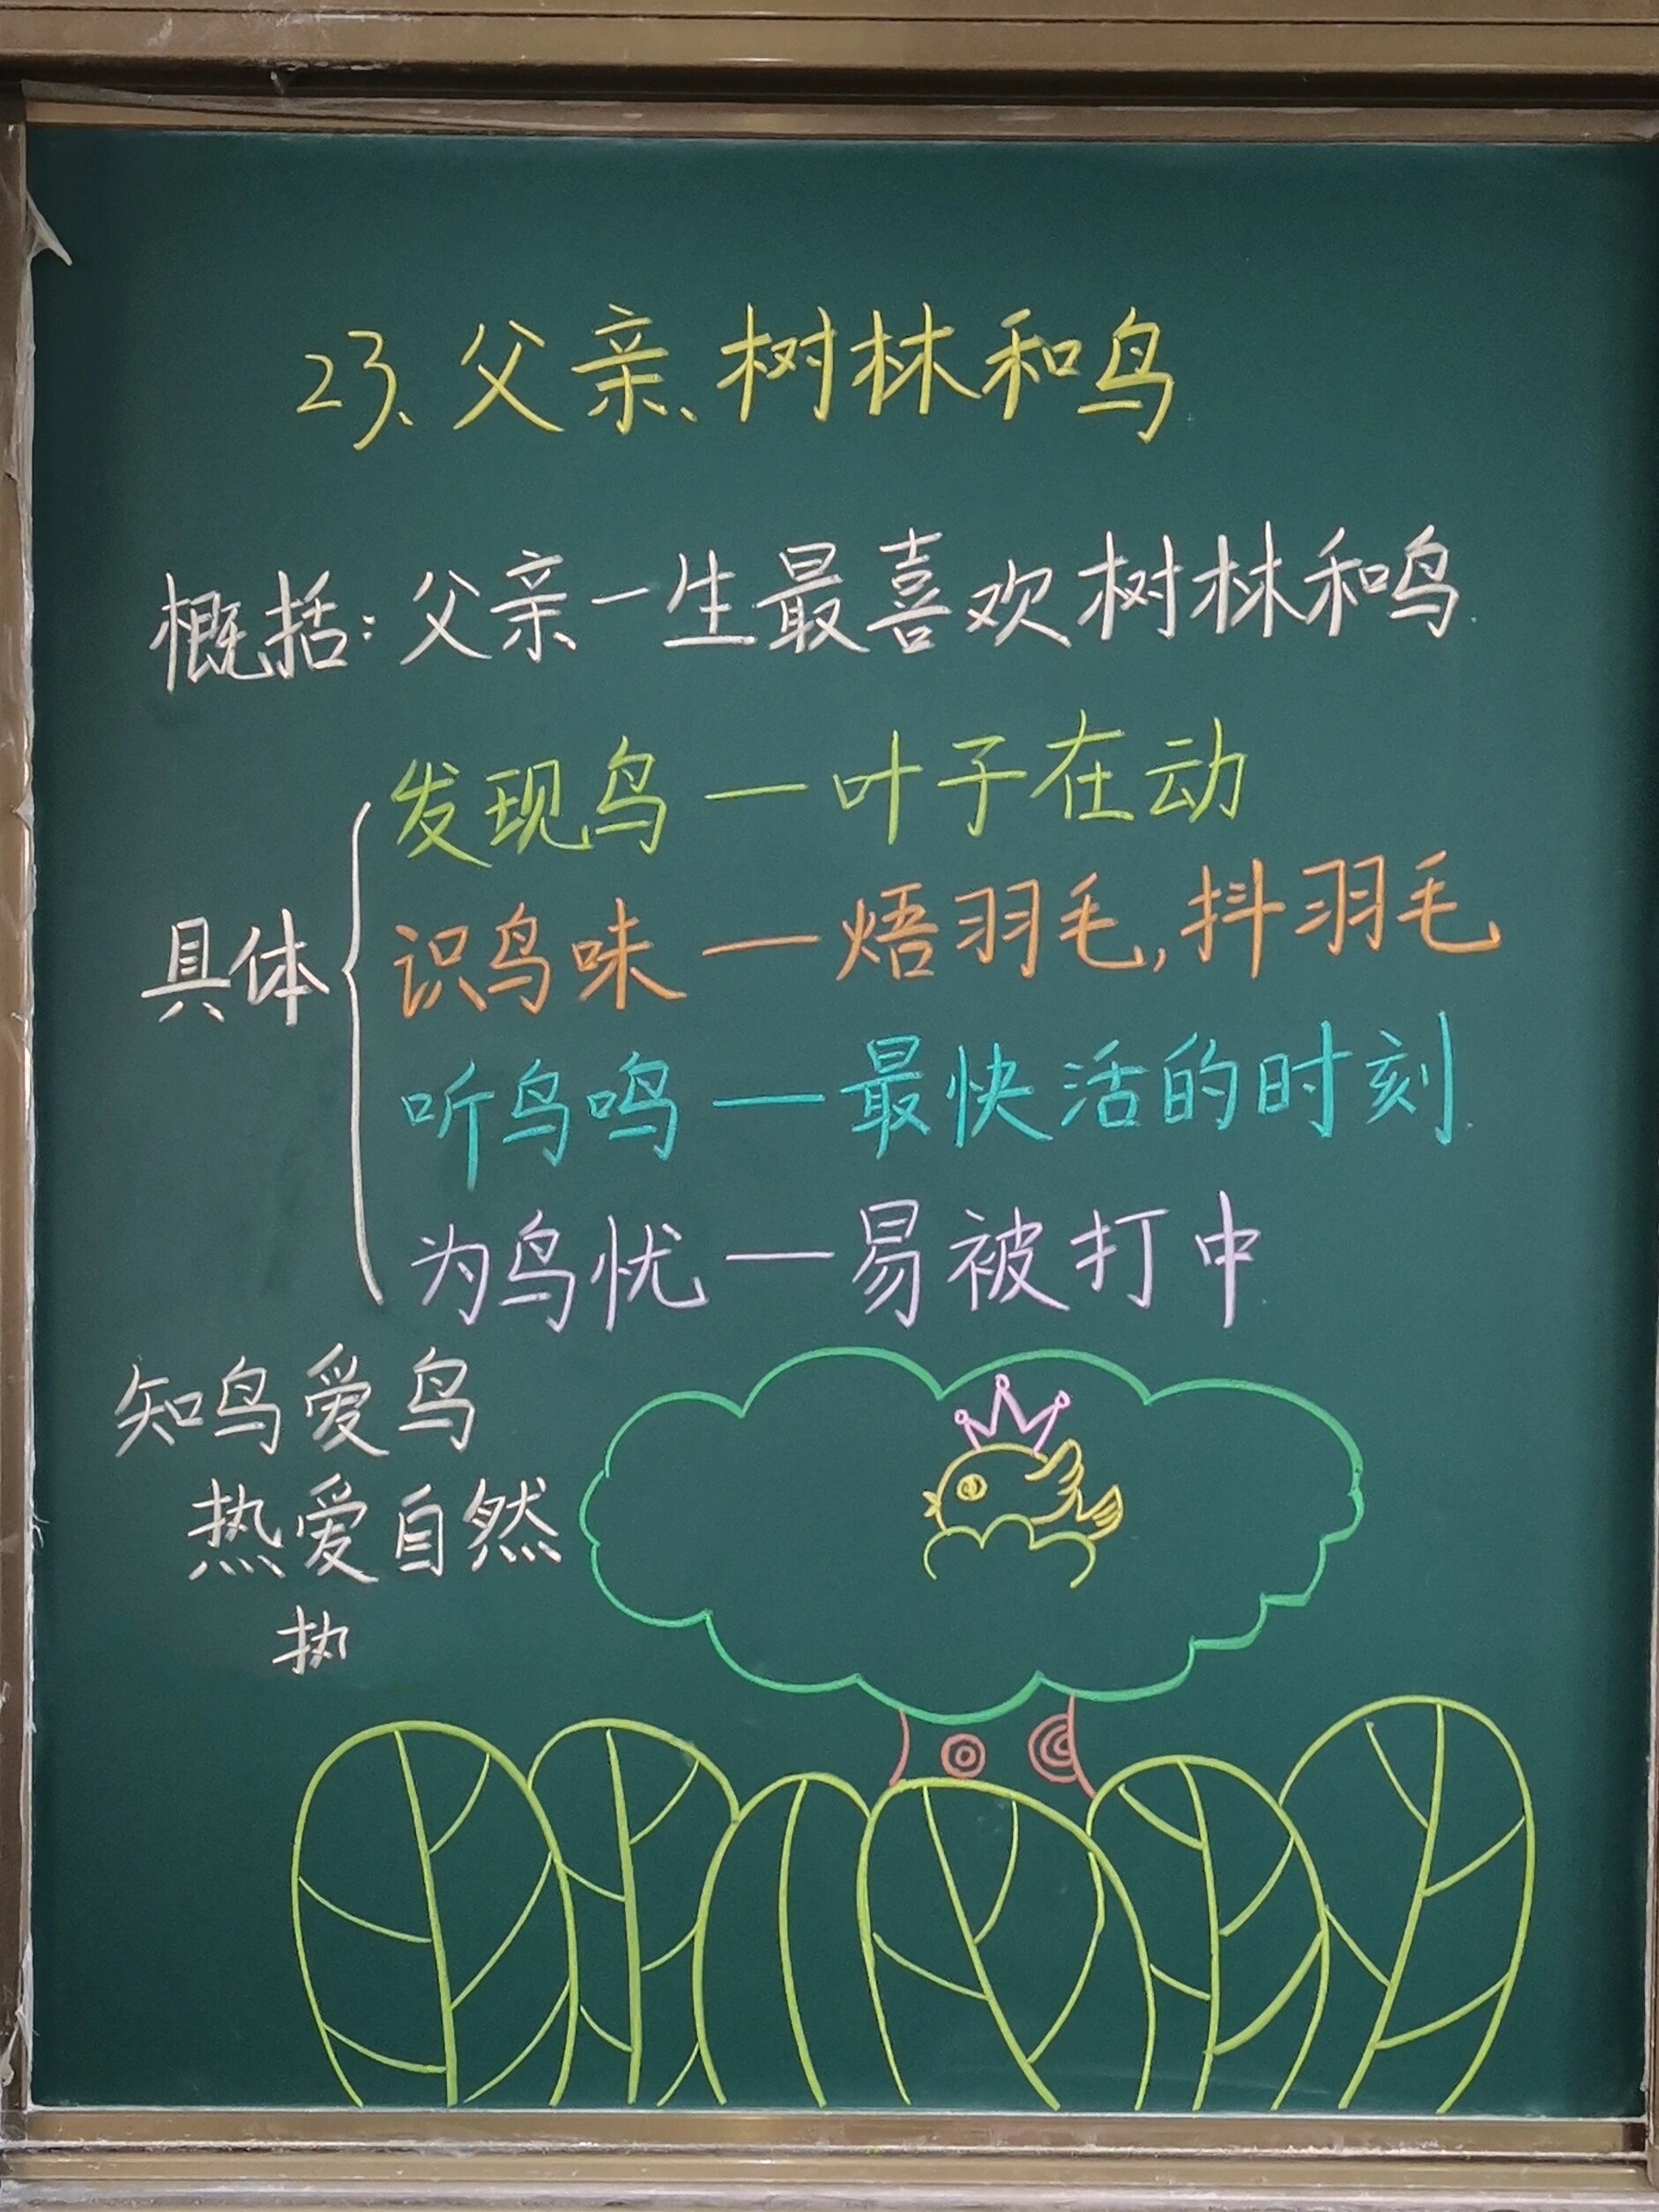 23、父亲、树林和鸟
概括:父亲一生最喜欢树林和鸟.
具体
发现鸟—叶子在动
识鸟味—焐羽毛,抖羽毛
听鸟鸣—最快活的时刻.
为鸟忧—易被打中
知鸟爱鸟
热爱自然
执